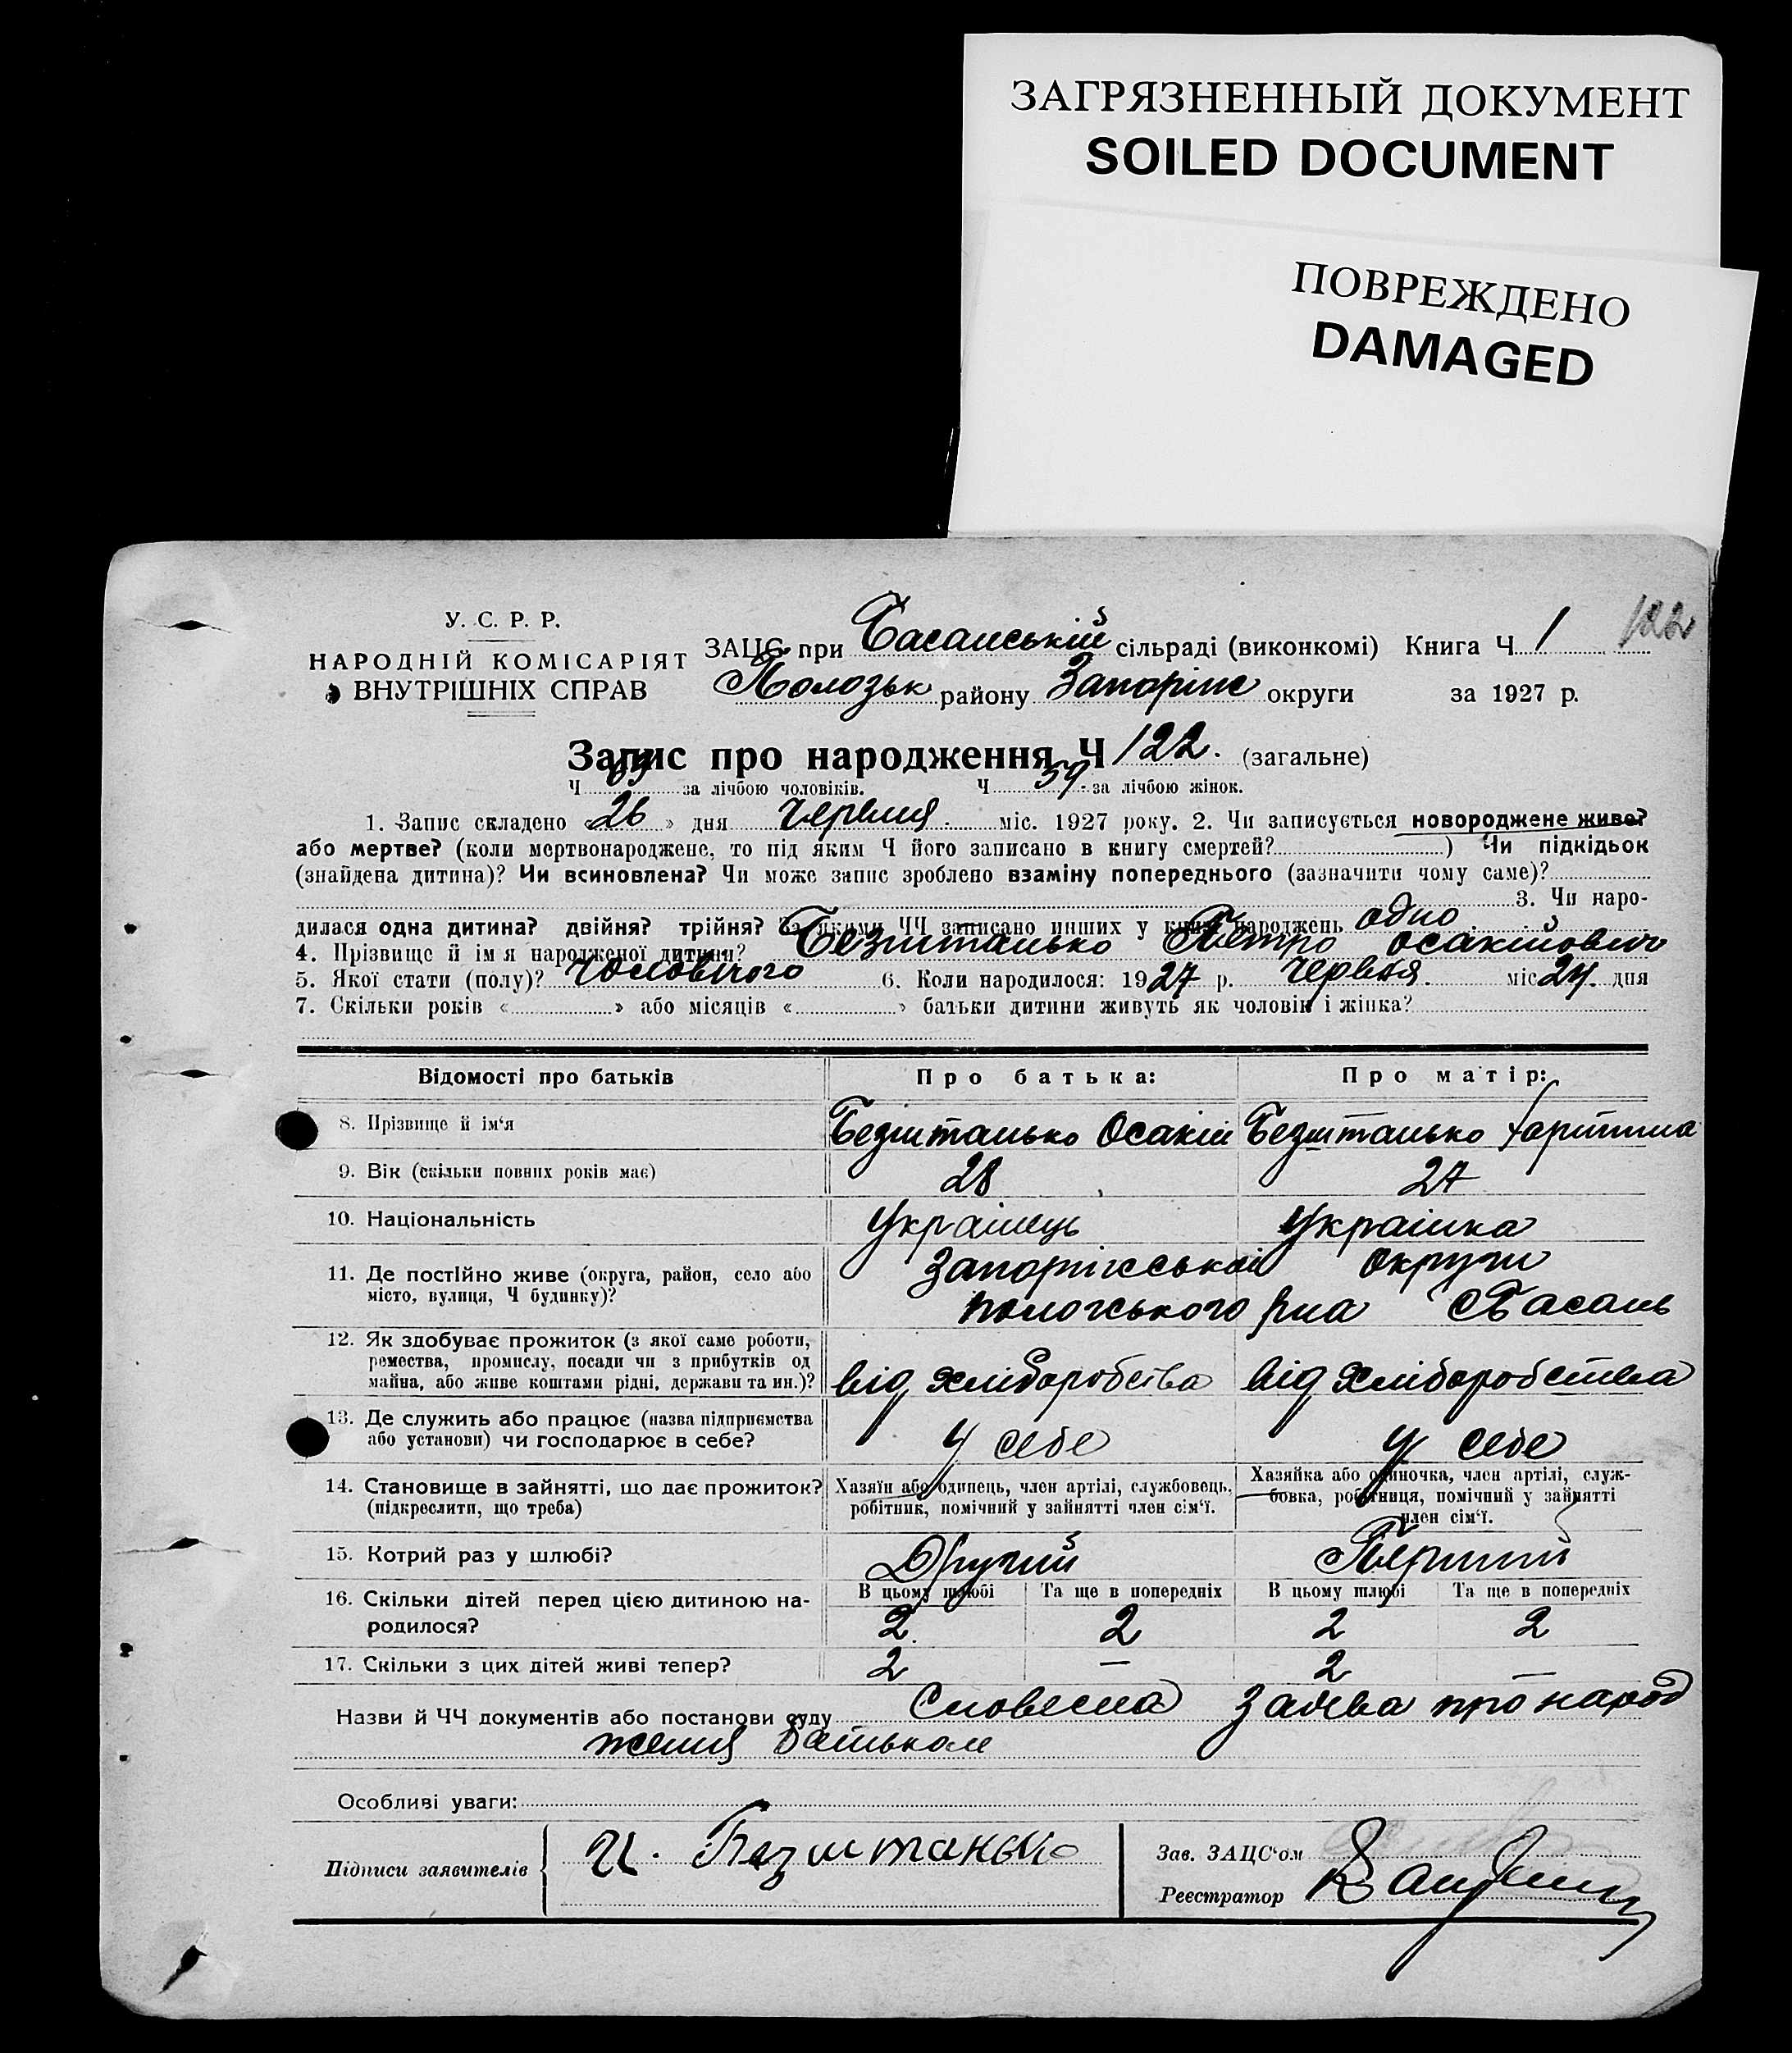 ЗАГРЯЗНЕННЫЙ ДОКУМЕНТ
SOILED DOCUMENT
ПОВРЕЖДЕНО
DAMAGED
У. С. Р. Р.
НАРОДНІЙ КОМІСАРІЯТ
ВНУТРІШНІХ СПРАВ
ЗАЦС при Басанській сільраді (виконкомі) Книга Ч 1 122
Полозьк району Запоріж округи за 1927 р.
Запис про народження Ч 122. (загальне)
Ч 63 за лічбою чоловіків. Ч 59. за лічбою жінок.
1. Запис складено «26» дня червня. міс. 1927 року. 2. Чи записується новороджене живе?
або мертве? (коли мертвонароджене, то під яким Ч його записано в книгу смертей? ) Чи підкідьок
(знайдена дитина)? Чи всиновлена? Чи може запис зроблено взаміну попереднього (зазначити чому саме)?
3. Чи наро-
дилася одна дитина? двійня? трійня? За якими ЧЧ записано инших у книзі народжень одно
4. Прізвище й ім'я народженої дитини? Безштанько Петро Осакійович
5. Якої стати (полу)? чоловічого 6. Коли народилося: 1927 р. червня. міс 24. дня
7. Скільки років « » або місяців « » батьки дитини живуть як чоловік і жінка?
Відомості про батьків Про батька: Про матір:
8. Прізвище й ім'я Безштанько Осакій Безштанько Харитина
9. Вік (скільки повних років має) 28 27
10. Національність Українець Українка
11. Де постійно живе (округа, район, село або Запоріжської округи
місто, вулиця, Ч будинку)? Пологського рна с Басань
12. Як здобуває прожиток (з якої саме роботи,
ремества, промислу, посади чи з прибутків од
майна, або живе коштами рідні, держави та ин.)? від хліборобства від хліборобства
13. Де служить або працює (назва підприємства
або установи) чи господарює в себе? у себе у себе
14. Становище в зайнятті, що дає прожиток? Хазяїн або одинець, член артілі, службовець, Хазяйка або одиночка, член артілі, служ-
(підкреслити, що треба) робітник, помічний у зайнятті член сім'ї. бовка, робітниця, помічний у зайнятті
член сім'ї.
15. Котрий раз у шлюбі? Другий Перший
16. Скільки дітей перед цією дитиною на- В цьому шлюбі Та ще в попередніх В цьому шлюбі Та ще в попередніх
родилося? 2. 2 2 2
17. Скільки з цих дітей живі тепер? 2 — 2 —
Назви й ЧЧ документів або постанови суду Словесна заява про народ
ження батьком
Особливі уваги:
Підписи заявителів И. Безштанько
Зав. ЗАЦС'ом
Реєстратор